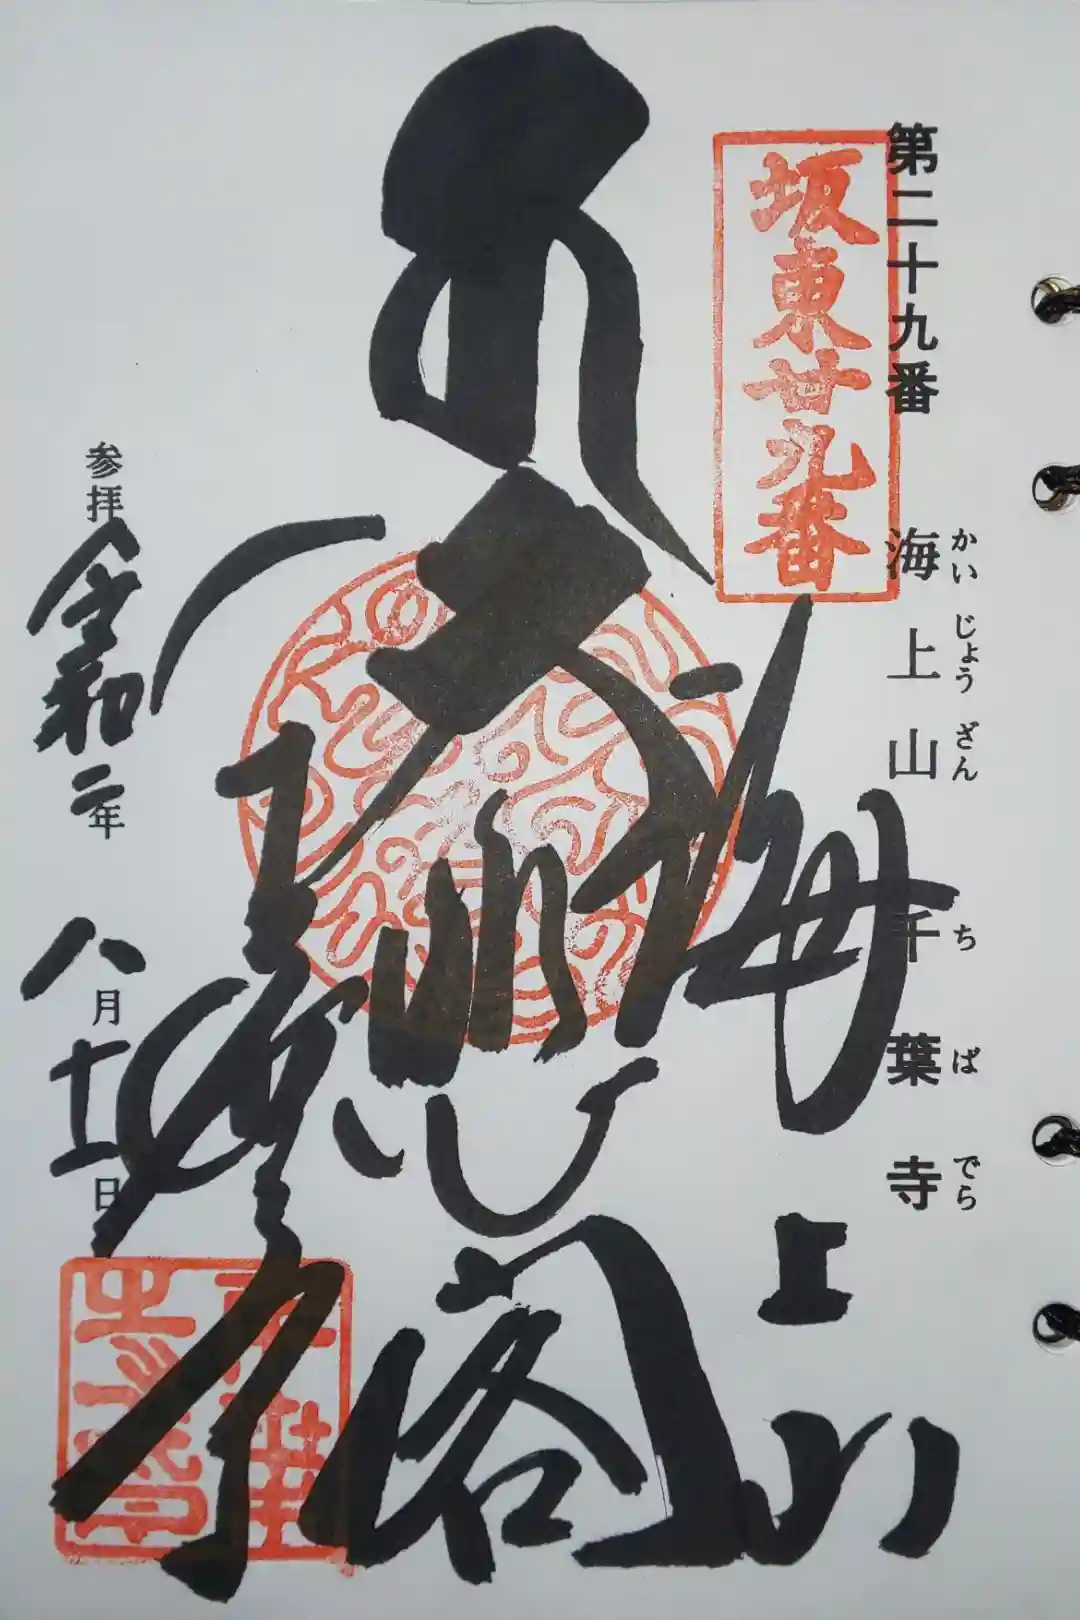 第二十九番 海上山 千葉寺
かいじょうざん ちばでら
坂東廿九番
海上山
大悲閣
千葉寺
参拝 令和二年 八月十一日